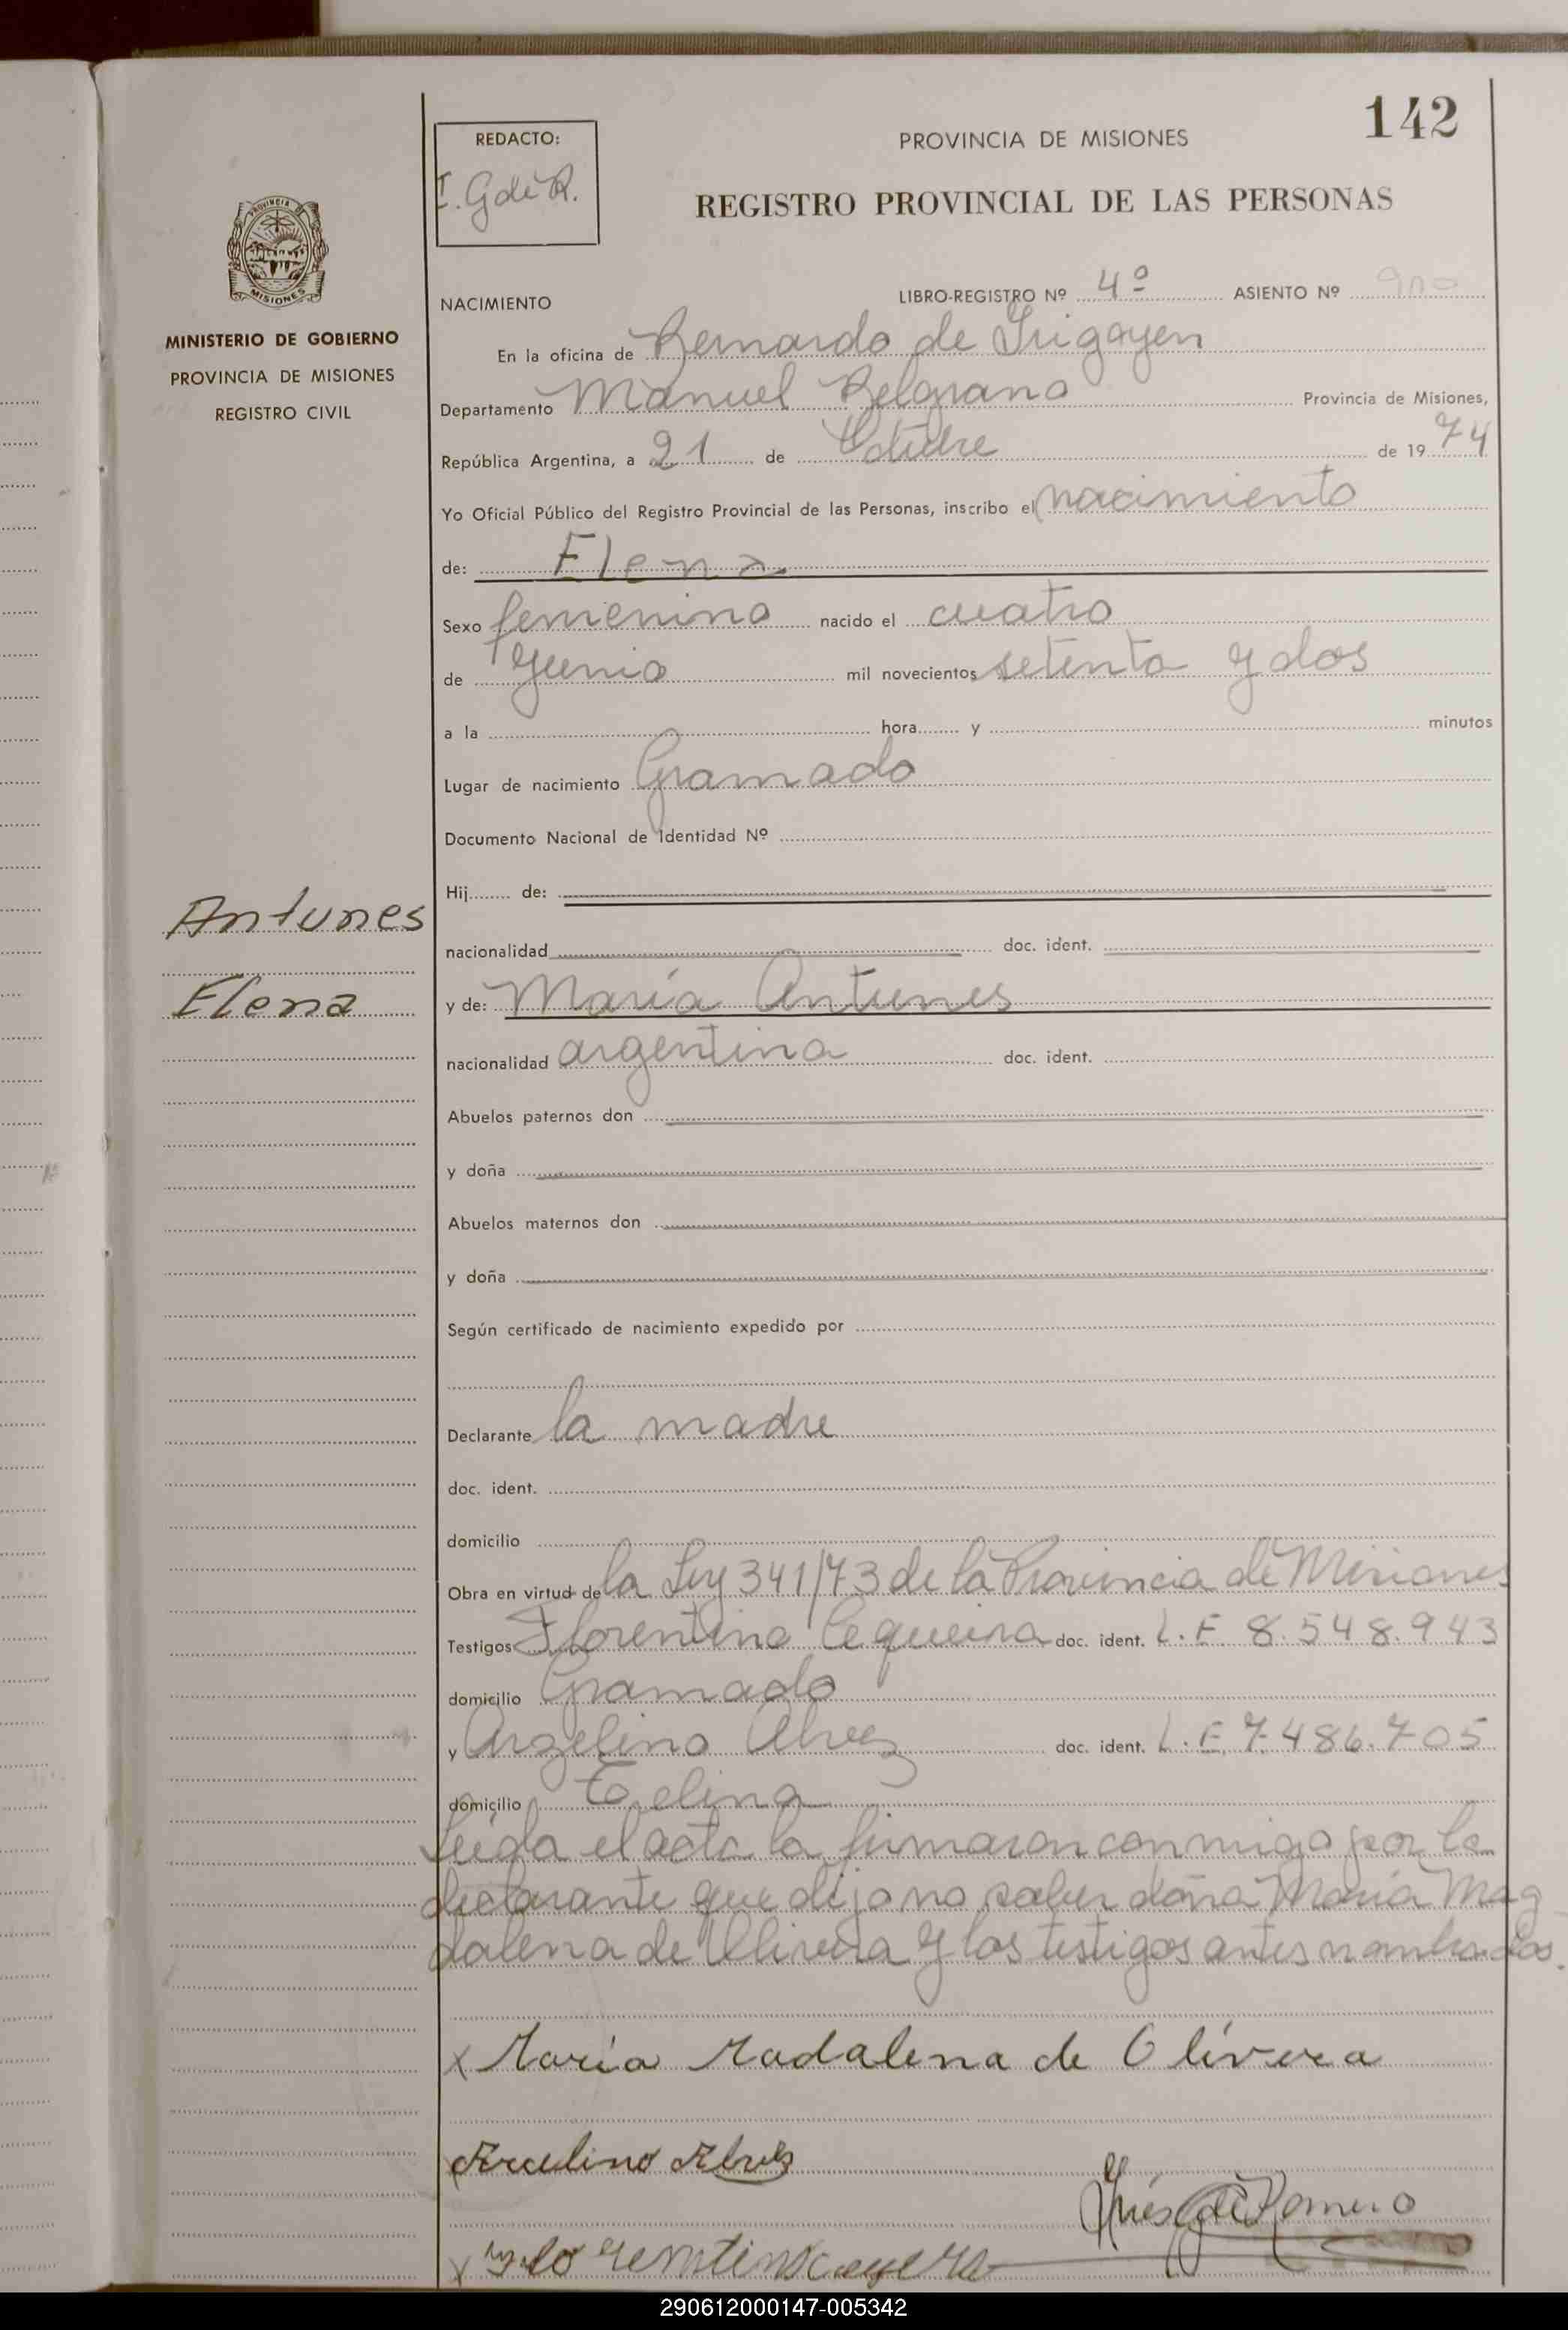 142
REDACTO:
I. G de R.
PROVINCIA DE MISIONES
REGISTRO PROVINCIAL DE LAS PERSONAS
PROVINCIA DE
MISIONES
MINISTERIO DE GOBIERNO
PROVINCIA DE MISIONES
REGISTRO CIVIL
NACIMIENTO LIBRO-REGISTRO Nº 4º ASIENTO Nº
En la oficina de Bernardo de Irigoyen
Departamento Manuel Belgrano Provincia de Misiones,
República Argentina, a 21 de Octubre de 1974
Yo Oficial Público del Registro Provincial de las Personas, inscribo el nacimiento
de: Elena
Sexo femenino nacido el cuatro
de Junio mil novecientos setenta y dos
a la hora y minutos
Lugar de nacimiento Gramado
Documento Nacional de Identidad Nº
Hij de:
Antunes
nacionalidad doc. ident.
Elena
y de: María Antunes
nacionalidad argentina doc. ident.
Abuelos paternos don
y doña
Abuelos maternos don
y doña
Según certificado de nacimiento expedido por
Declarante la madre
doc. ident.
domicilio
Obra en virtud de la Ley 341/73 de la Provincia de Misiones
Testigos Florentino Cequeira doc. ident. L.E 8.548.943
domicilio Gramado
y Argelino Alvez doc. ident. L.E 7.486.705
domicilio
Leída el acta la firmaron conmigo por la
declarante que dijo no saber doña María Mag
dalena de Olivera y los testigos antes nombrados.
x María Madalena de Olívera
Arcelino Alves
Inés G de Romero
x
290612000147-005342